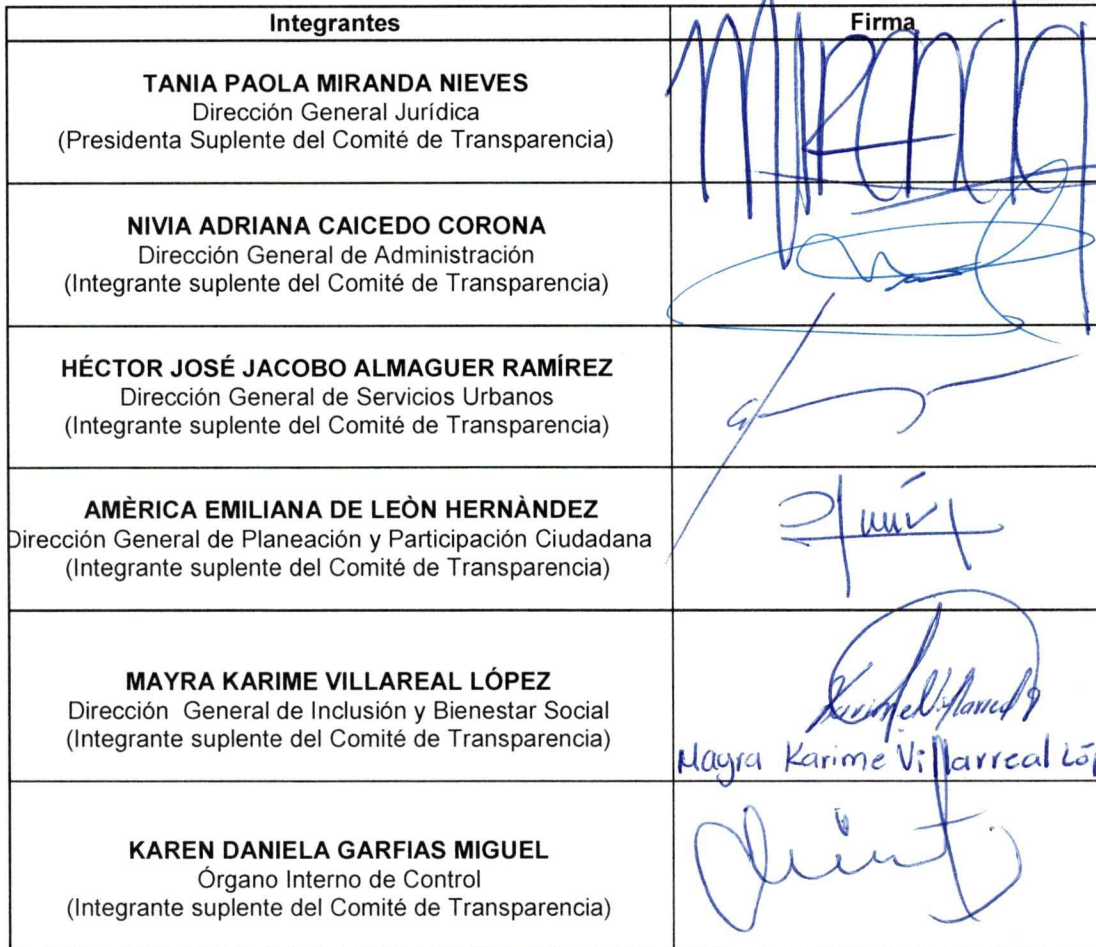 Integrantes
Firma
TANIA PAOLA MIRANDA NIEVES
Dirección General Jurídica
(Presidenta Suplente del Comité de Transparencia)
Miranda
NIVIA ADRIANA CAICEDO CORONA
Dirección General de Administración
(Integrante suplente del Comité de Transparencia)
HÉCTOR JOSÉ JACOBO ALMAGUER RAMÍREZ
Dirección General de Servicios Urbanos
(Integrante suplente del Comité de Transparencia)
AMÈRICA EMILIANA DE LEÒN HERNÀNDEZ
Dirección General de Planeación y Participación Ciudadana
(Integrante suplente del Comité de Transparencia)
MAYRA KARIME VILLAREAL LÓPEZ
Dirección  General de Inclusión y Bienestar Social
(Integrante suplente del Comité de Transparencia)
Karime Villarreal
Mayra Karime Villarreal Lóp
KAREN DANIELA GARFIAS MIGUEL
Órgano Interno de Control
(Integrante suplente del Comité de Transparencia)